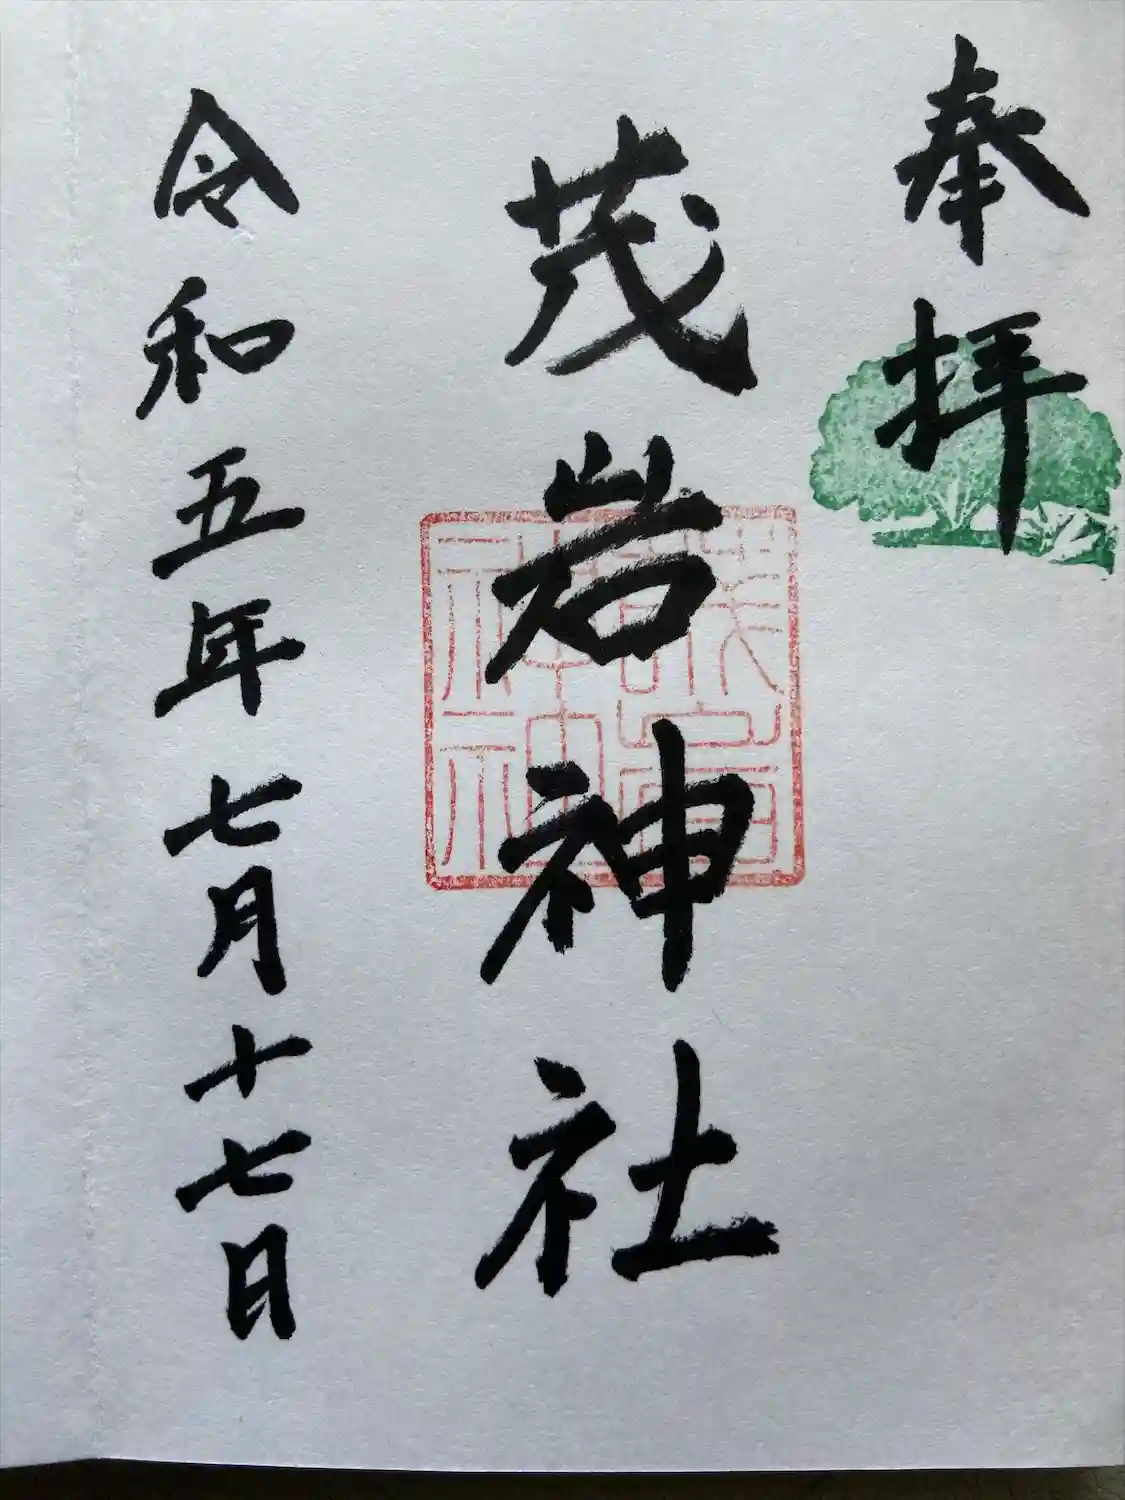 奉拝
茂岩神社
令和五年七月十七日
茂岩
神社